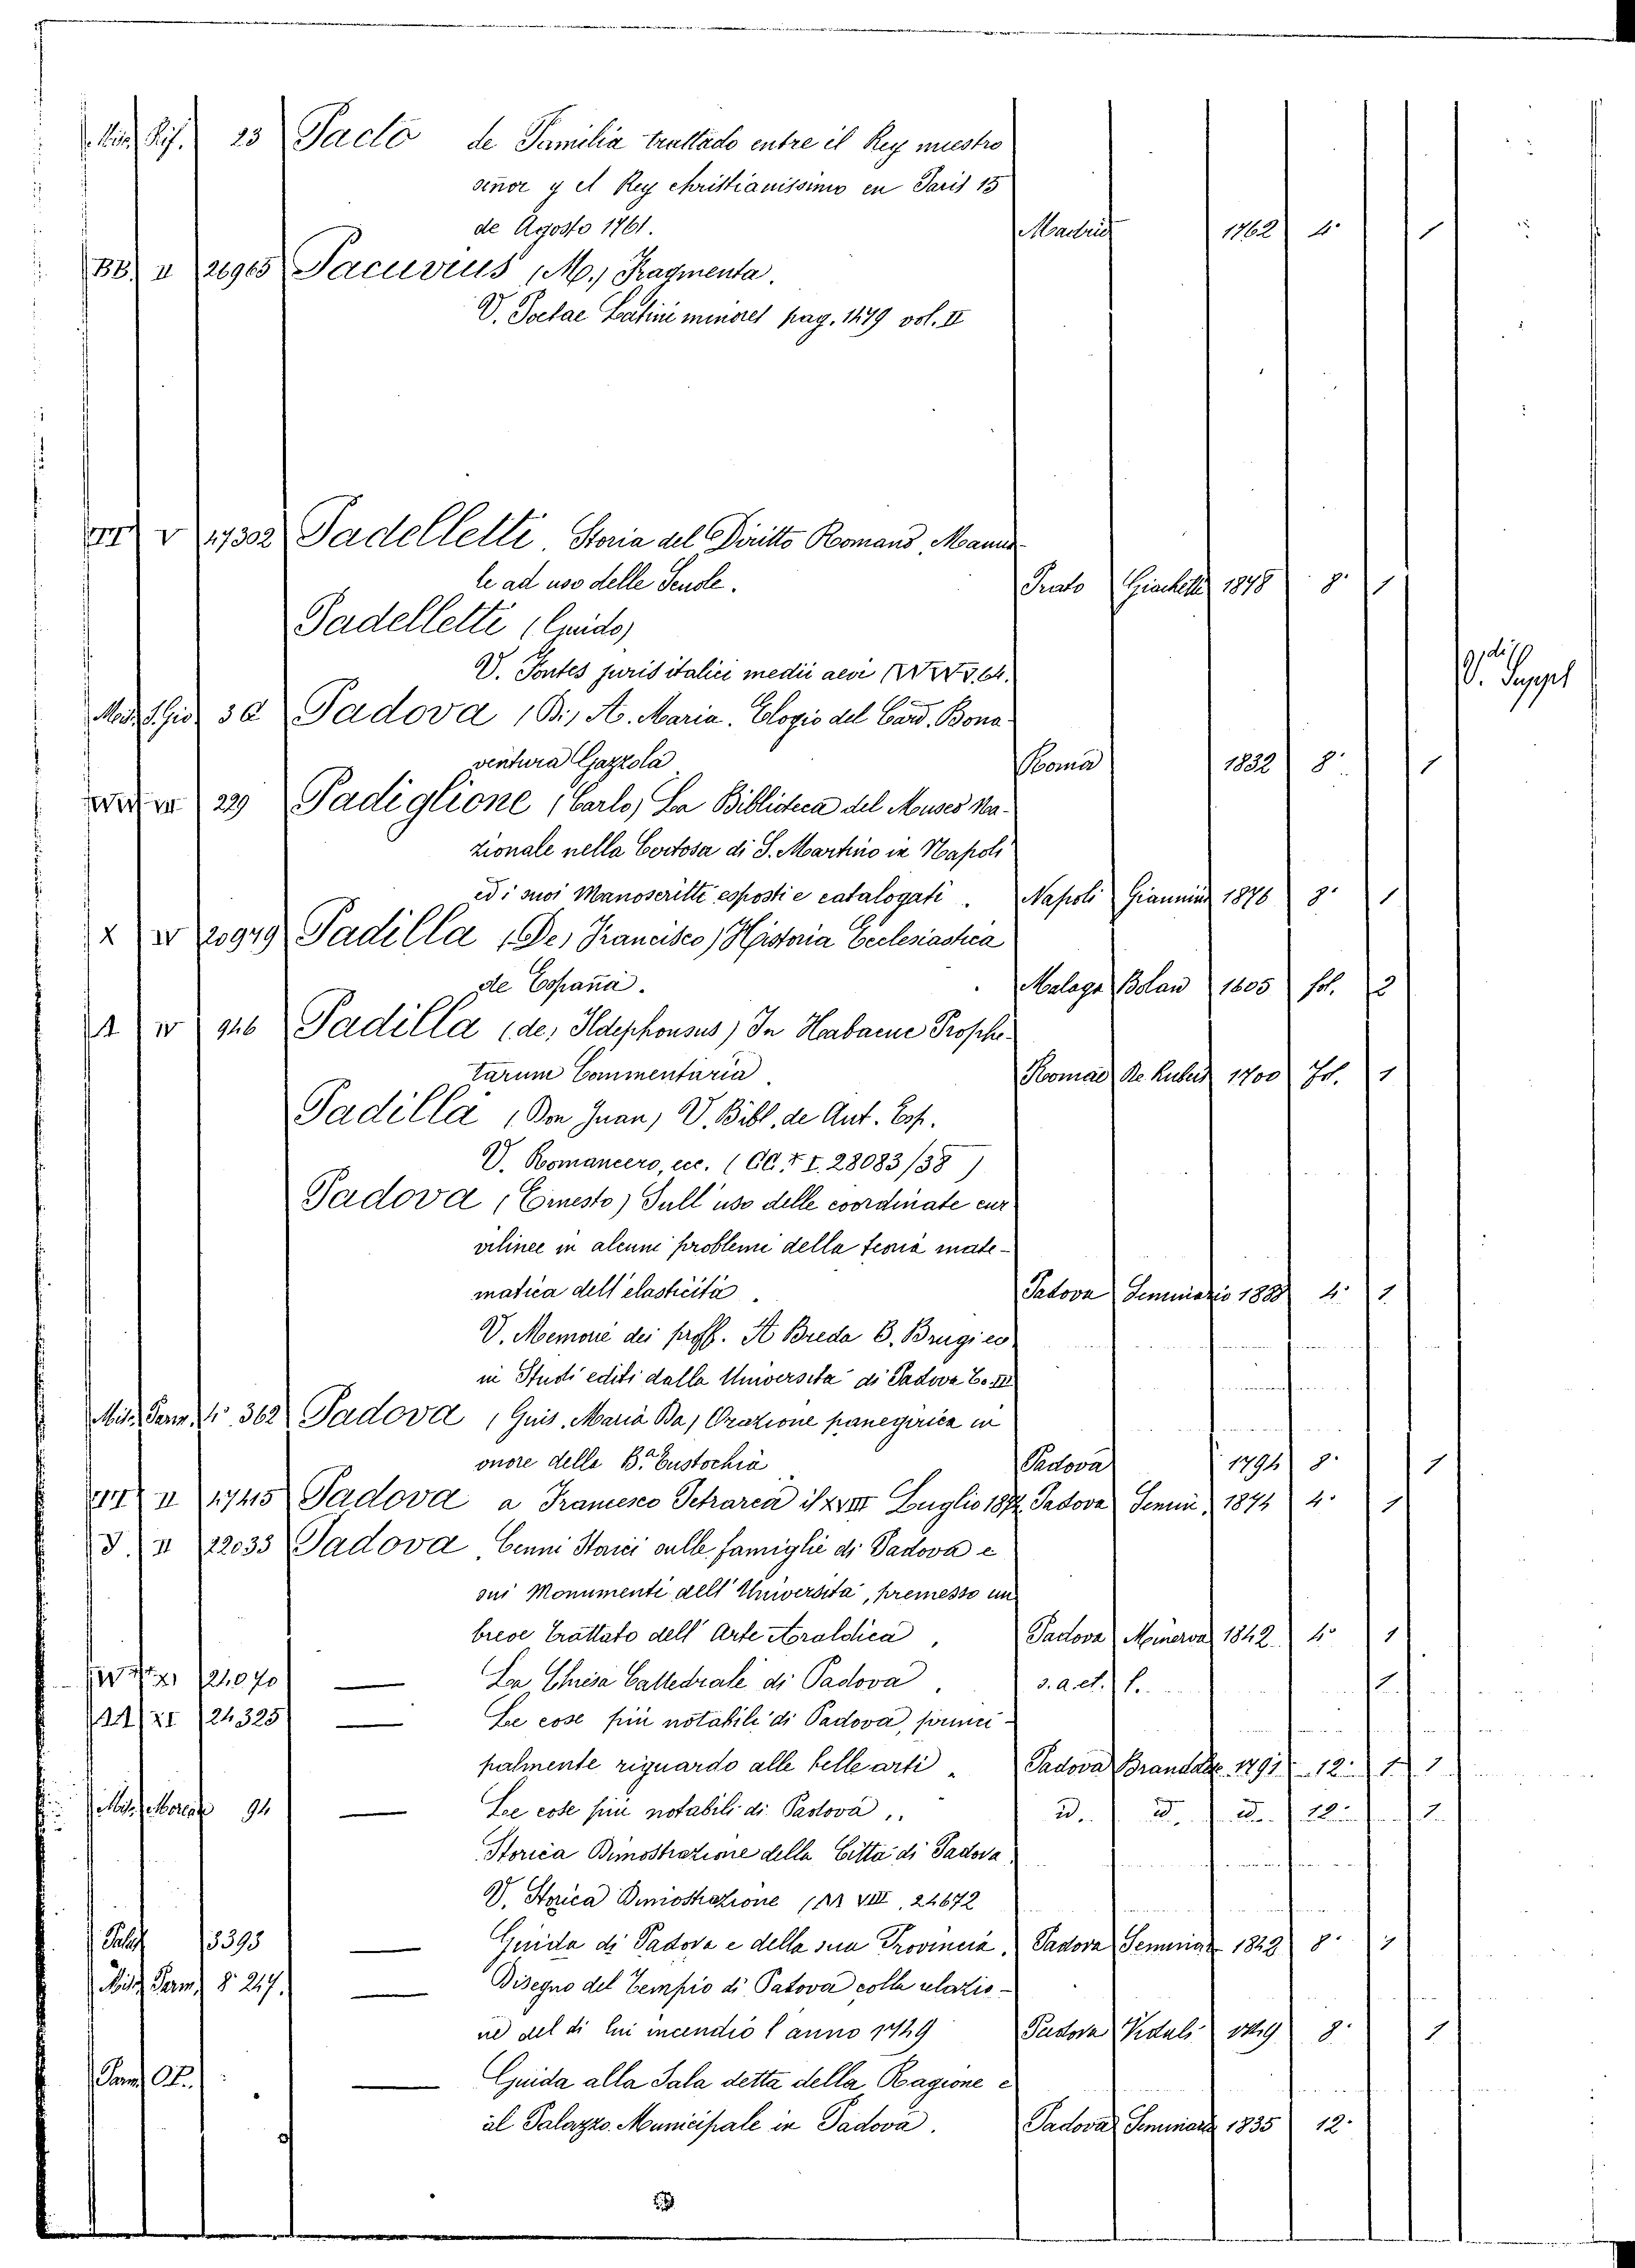 23 Pacto de Familia trattado entre il Rey nuestro
señor y el Rey christianissimo en Paris 15
de Agosto 1761. Madrid 1762 4° 1
BB. II 26965 Pacuvius (M.) Fragmenta.
V. Poetae Latini minores pag. 1479 vol. II
V 17302 Padelletti. Storia del Diritto Romano, Manua
le ad uso delle Scuole. Prato Giachetti 1878 8° 1
Padelletti (Guido)
V. Fontes juris italici medii aevi
V. Suppl
3 Padova (B.) A. Maria. Elogio del Card. Bona
ventura Gazzola Roma 1832 8° 1
229 Padiglione (Carlo) La Biblioteca del Museo Na-
zionale nella Certosa di S. Martino in Napoli
ed i suoi Manoscritti esposti e catalogati. Napoli Giannini 1876 8° 1
X IV 20949 Padilla (De, Francisco) Historia Ecclesiastica
de España. Malaga Bolan 1605 fol. 2
A IV 946 Padilla (de, Ildephonsus) In Habacuc Prophe-
tarum Commentaria Romae De Rubeis 1700 Fol. 1
Padilla (Don Juan) V. Bibl. de Aut. Esp.
V. Romancero, ecc. (CC. I. 28083/38)
Padova (Ernesto) Sull' uso delle coordinate cur
vilinee in alcuni problemi della teoria mate-
matica dell' elasticità. Padova Seminario 1888 4° 1
V. Memorie dei proff. A Breda B. Brugi ec
in Studi editi dalla Università di Padova
Mis. Parm. 4° 362 Padova (Gius. Maria Da) Orazione panegirica in
onore della B.a Eustochia Padova 1794 8° 1
II 1745 Padova a Francesco Petrarca il XVIII Luglio 1874 Padova Semin. 1874 4° 1
J. II 22033 Padova. Cenni Storici sulle famiglie di Padova e
sui Monumenti dell' Università, premesso un
breve trattato dell' Arte Araldica, Padova Minerva 1842 4° 1
21070 — La Chiesa Cattedrale di Padova. s. a. et. l. 1
24325 — Le cose più notabili di Padova, princi-
palmente riguardo alle belle arti. Padova Brandolese 1791 12° 1 1
94 — Le cose più notabili di Padova.. id. id. id. 12° 1
Storica Dimostrazione della Città di Padova
V. Storica Dimostrazione (AA VIII, 24672
Palat 13393 — Guida di Padova e della sua Provincia. Padova Seminar 1842 8° 1
Misc Parm. 8° 247. — Disegno del Tempio di Patova colla relazio-
ne del di lui incendio l' anno 1749 Padova Vidali 1749 8° 1
Parm — Guida alla Sala detta della Ragione e
al Palazzo Municipale in Padova. Padova Seminario 1835 12°